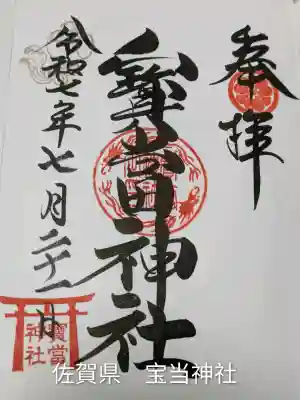 奉拝
寳當神社
令和七年七月二十一日
寳當
神社
佐賀県　宝当神社